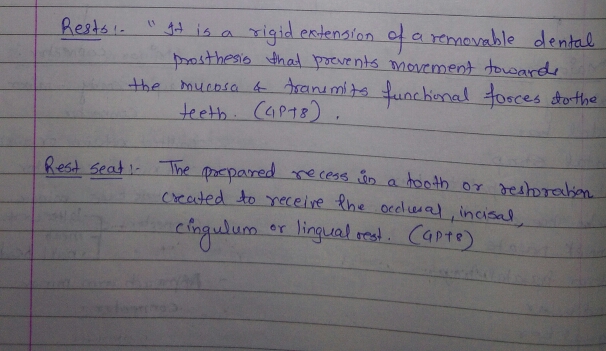 Rests:- "It is a rigid extension of a removable dental
prosthesis that prevents movement towards
the mucosa & transmits functional forces to the
teeth. (GPT8).
Rest seat:- The prepared recess in a tooth or restoration
created to receive the occlusal, incisal,
cingulum or lingual rest. (GPT8)